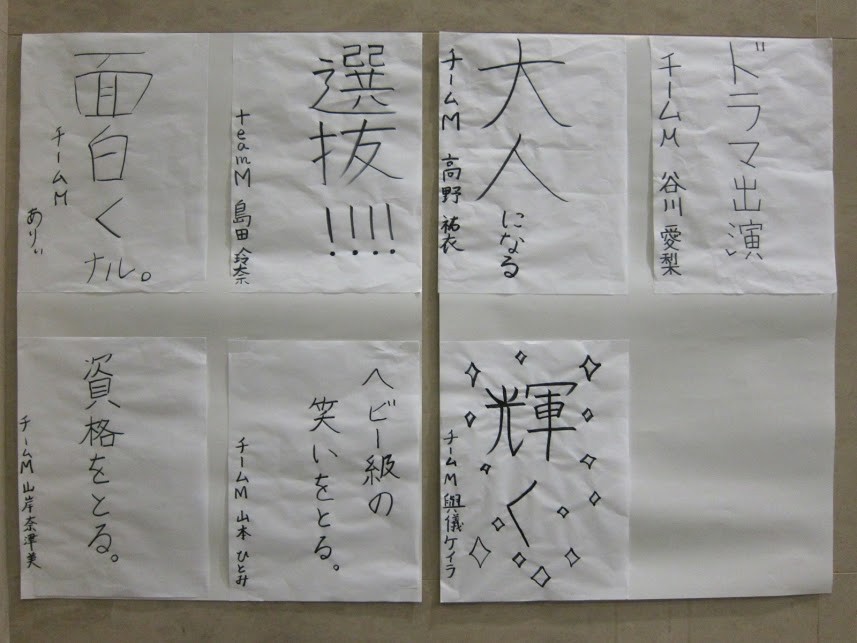 ドラマ出演
チームM 谷川 愛梨
大人になる
チームM 高野 祐衣
選抜!!!!
teamM 島田 玲奈
面白くナル。
チームM ありぃ
輝く
チームM 與儀ケイラ
ヘビー級の
笑いをとる。
チームM 山本 ひとみ
資格をとる。
チームM 山岸奈津美